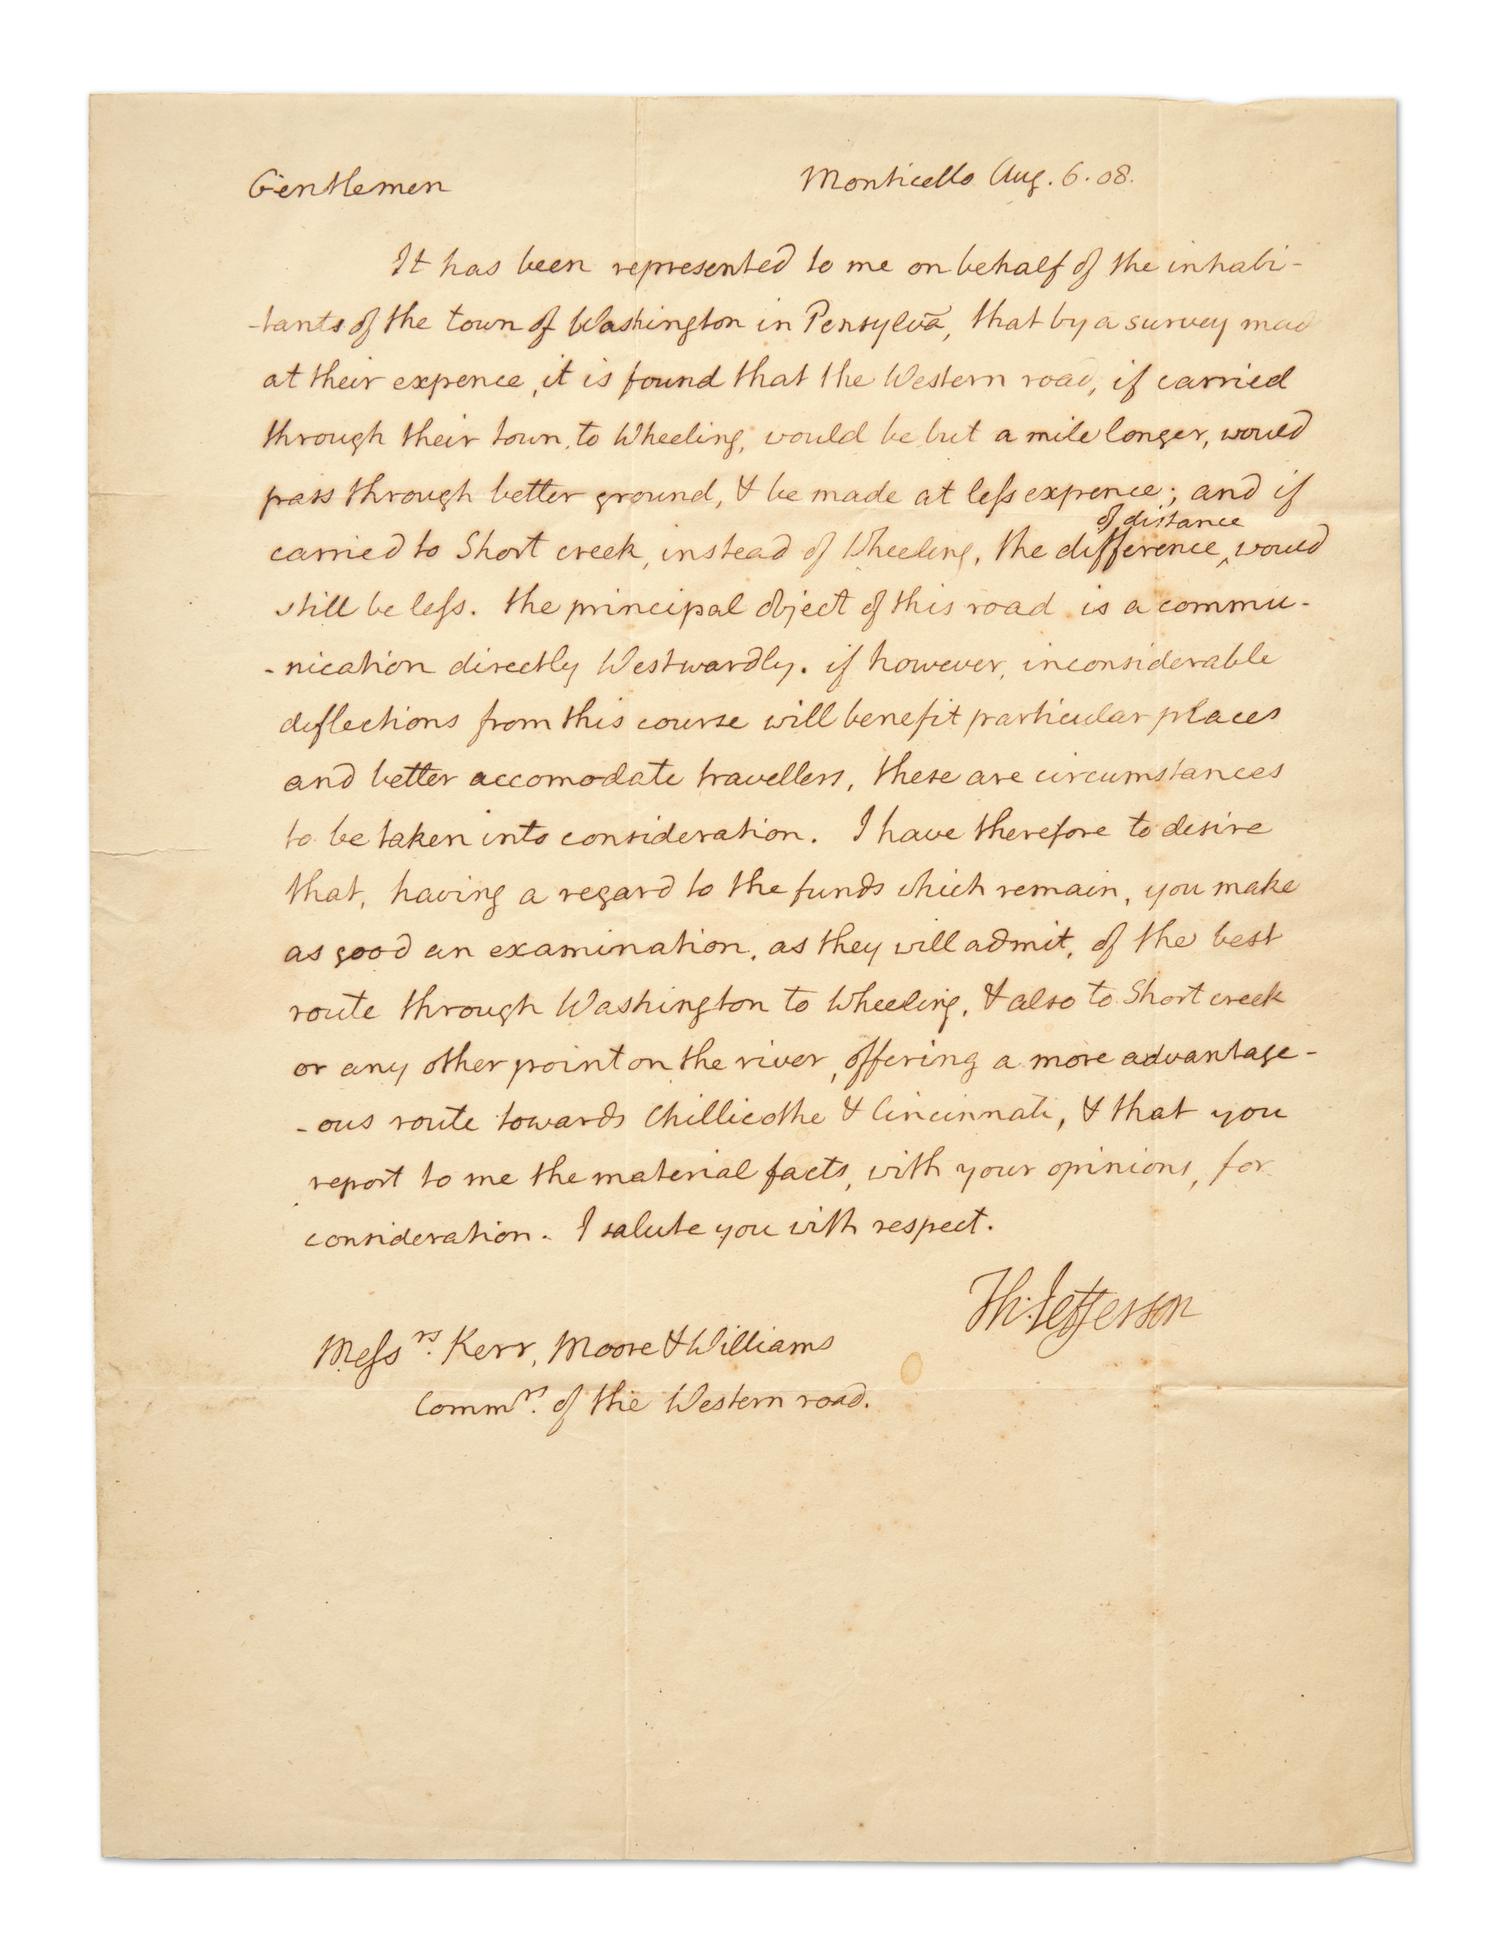 Gentlemen
Monticello Aug. 6. 08.
It has been represented to me on behalf of the inhabi-
-tants of the town of Washington in Pensylva, that by a survey mad
at their expence, it is found that the Western road, if carried
through their town, to Wheeling, would be but a mile longer, would
pass through better ground, & be made at less expence; and if
of distance
carried to Short creek, instead of Wheeling, the difference ^ would
still be less. the principal object of this road is a commu-
-nication directly Westwardly. if however, inconsiderable
deflections from this course will benefit particular places
and better accomodate travellers, these are circumstances
to be taken into consideration. I have therefore to desire
that, having a regard to the funds which remain, you make
as good an examination, as they will admit, of the best
route through Washington to Wheeling, & also to Short creek
or any other point on the river, offering a more advantage-
-ous route towards Chillicothe & Cincinnati, & that you
report to me the material facts, with your opinions, for
consideration. I salute you with respect.
Th: Jefferson
Messrs. Kerr, Moore & Williams
Commrs. of the Western road.